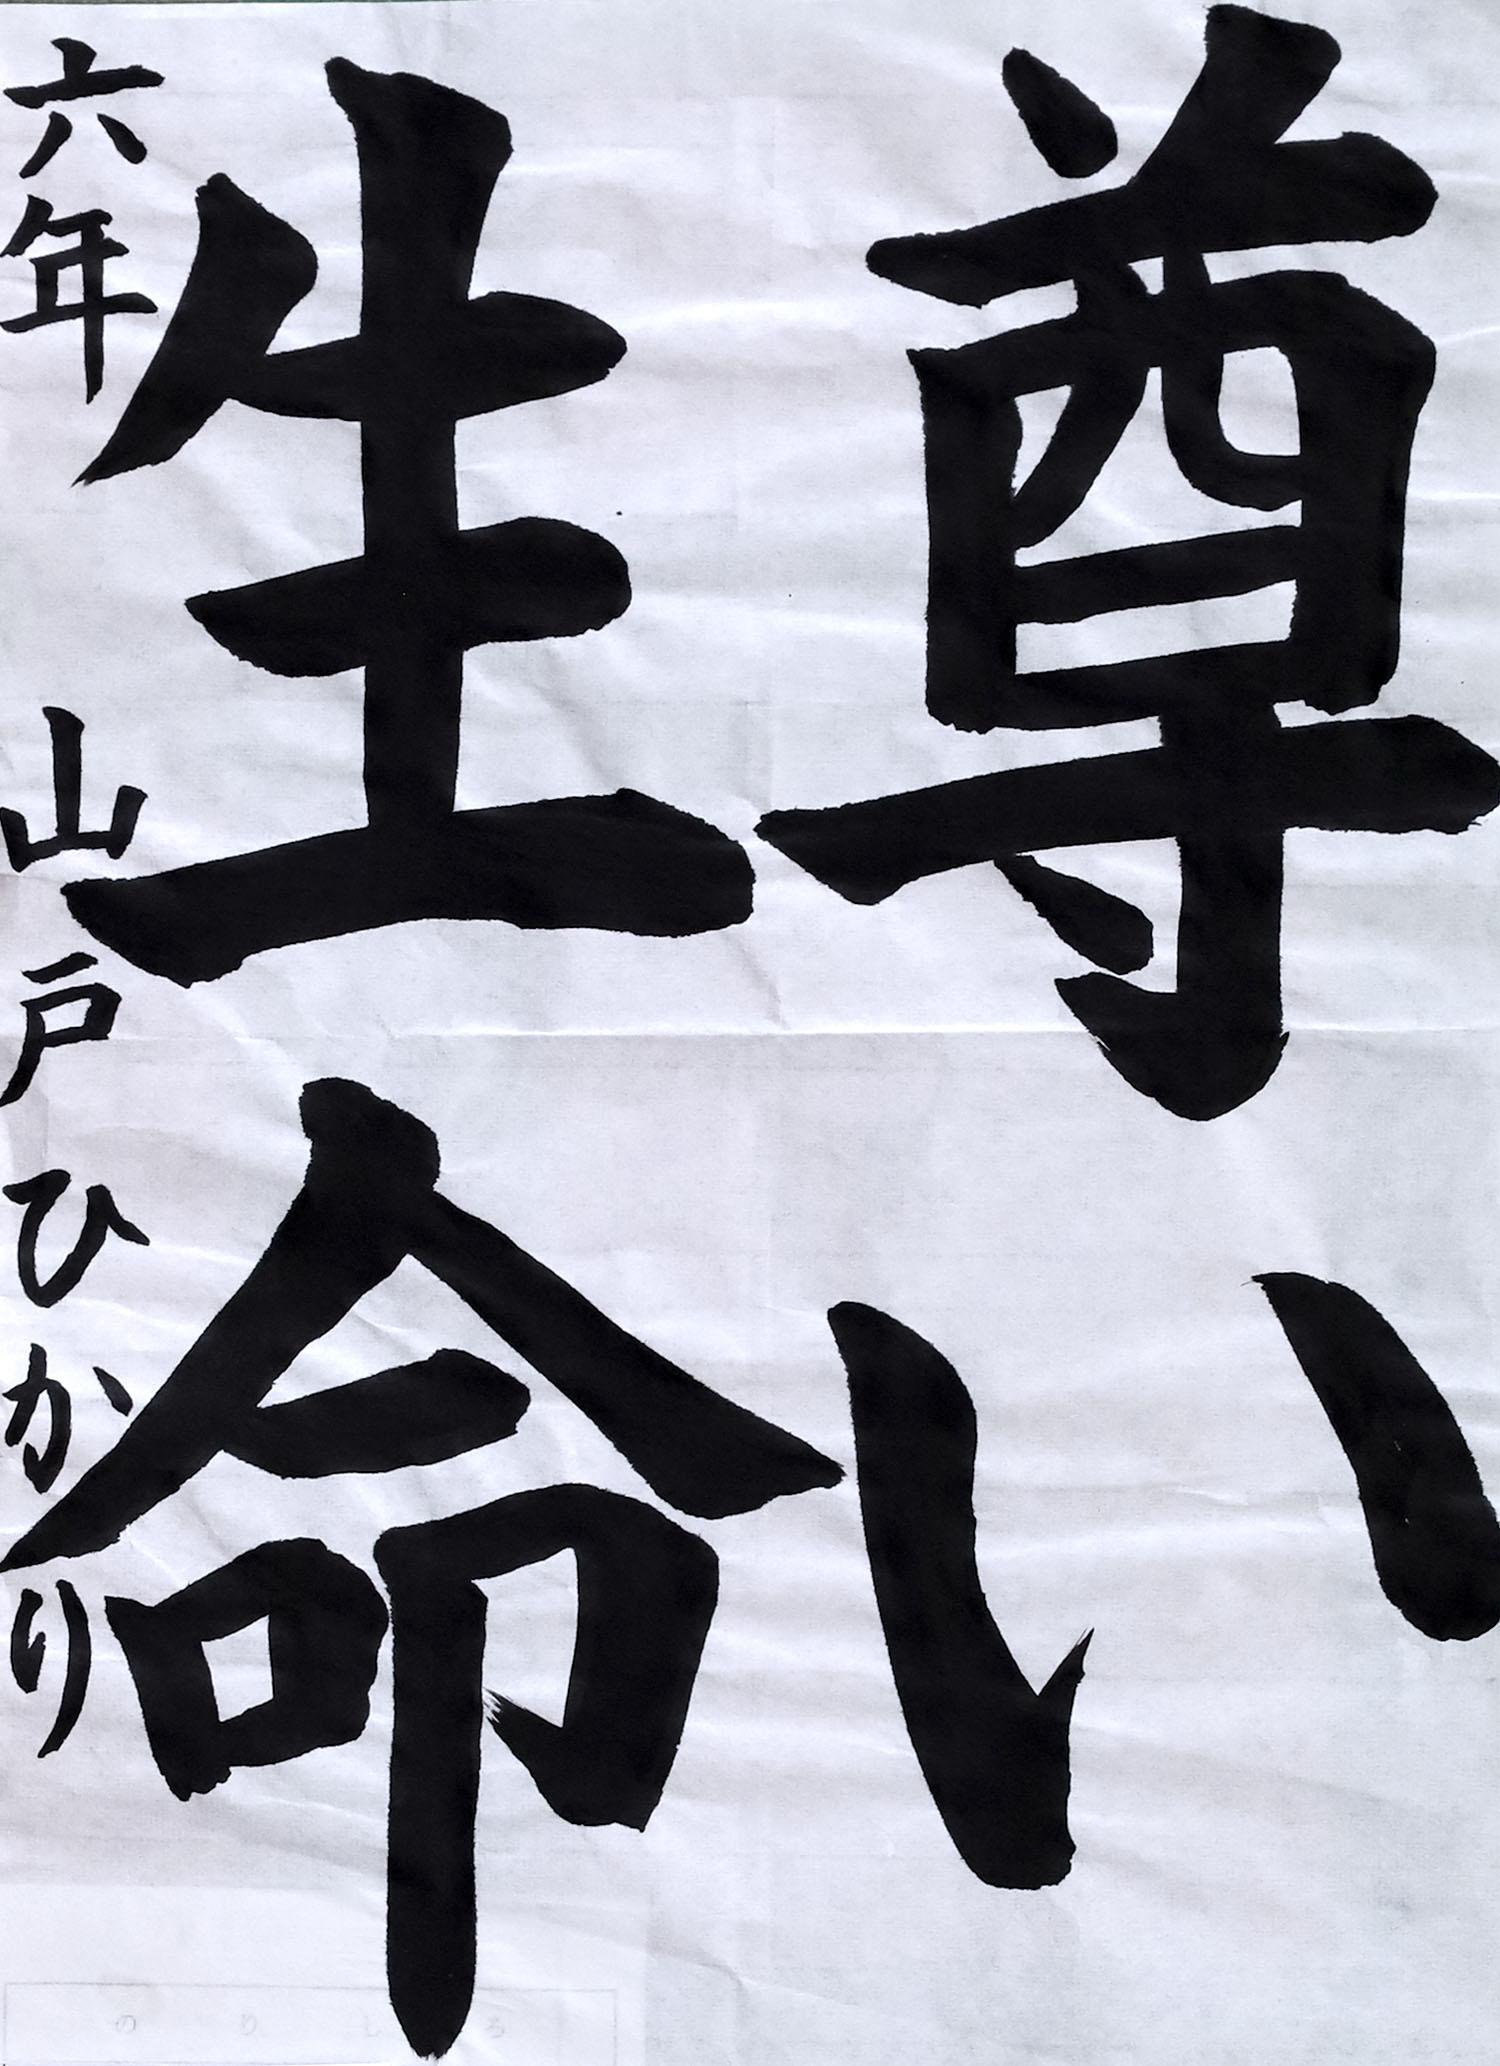 尊い
生命
六年 山戸ひかり
のりしろ